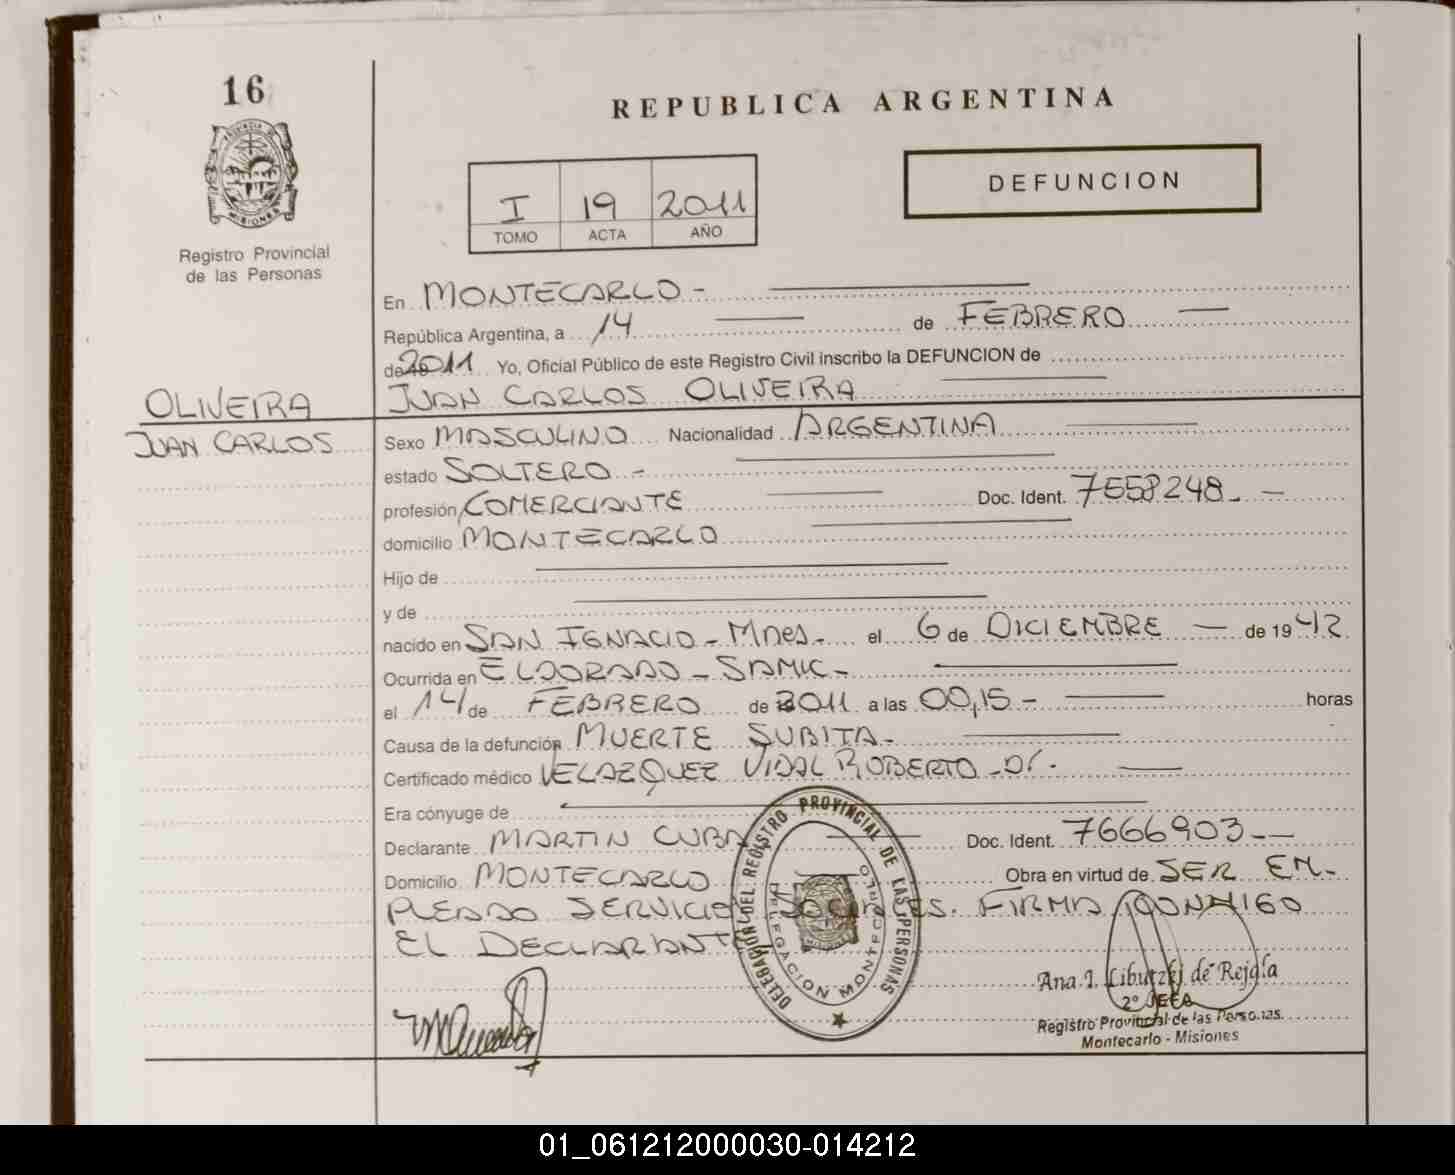 16
PROVINCIA DE
MISIONES
Registro Provincial
de las Personas
REPUBLICA ARGENTINA
I 19 2011
TOMO ACTA AÑO
DEFUNCION
En MONTECARLO -
República Argentina, a 14 de FEBRERO
de 2011 Yo, Oficial Público de este Registro Civil inscribo la DEFUNCION de
JUAN CARLOS OLIVEIRA
OLIVEIRA
JUAN CARLOS
Sexo MASCULINO Nacionalidad ARGENTINA
estado SOLTERO -
profesión COMERCIANTE Doc. Ident. 7558248 -
domicilio MONTECARLO
Hijo de
y de
nacido en SAN IGNACIO - Mnes - el 6 de DICIEMBRE - de 1942
Ocurrida en ELDORADO - SAMIC -
el 14 de FEBRERO de 2011 a las 00,15 - horas
Causa de la defunción MUERTE SUBITA -
Certificado médico VELAZQUEZ VIDAL ROBERTO - Dr -
Era cónyuge de
Declarante MARTIN CUBA Doc. Ident. 7666903 --
Domicilio MONTECARLO Obra en virtud de SER EM-
PLEADO SERVICIOS SOCIALES. FIRMA CONMIGO
EL DECLARANTE
DELEGACION DEL REGISTRO PROVINCIAL DE LAS PERSONAS
DELEGACION MONTECARLO
Ana I. Libutzki de Rejala
2º JEFA
Registro Provincial de las Personas
Montecarlo - Misiones
01_061212000030-014212